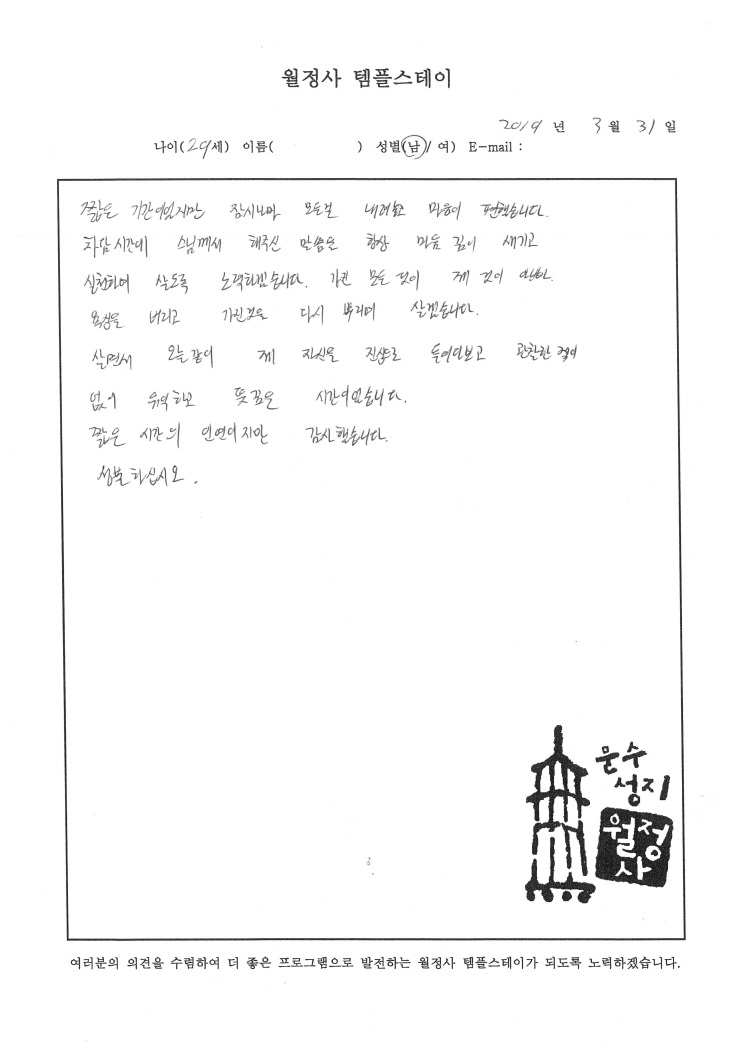 월정사 템플스테이
2019 년 3 월 31 일
나이(29세) 이름( ) 성별(남/ 여) E-mail :
짧은 기간이었지만 잠시나마 모든걸 내려놓고 마음이 편했습니다.
차담 시간에 스님께서 해주신 말씀은 항상 마음 깊이 새기고
실천하며 살도록 노력하겠습니다. 가진 모든 것이 제 것이
욕심을 버리고 가진것을 다시 뿌리며 살겠습니다.
살면서 오늘같이 제 자신을 진실로 들여다보고 관찰한 적이
없어 유익하고 뜻깊은 시간이었습니다.
짧은 시간의 인연이지만 감사했습니다.
성불하십시오.
문수
성지
월정
사
여러분의 의견을 수렴하여 더 좋은 프로그램으로 발전하는 월정사 템플스테이가 되도록 노력하겠습니다.